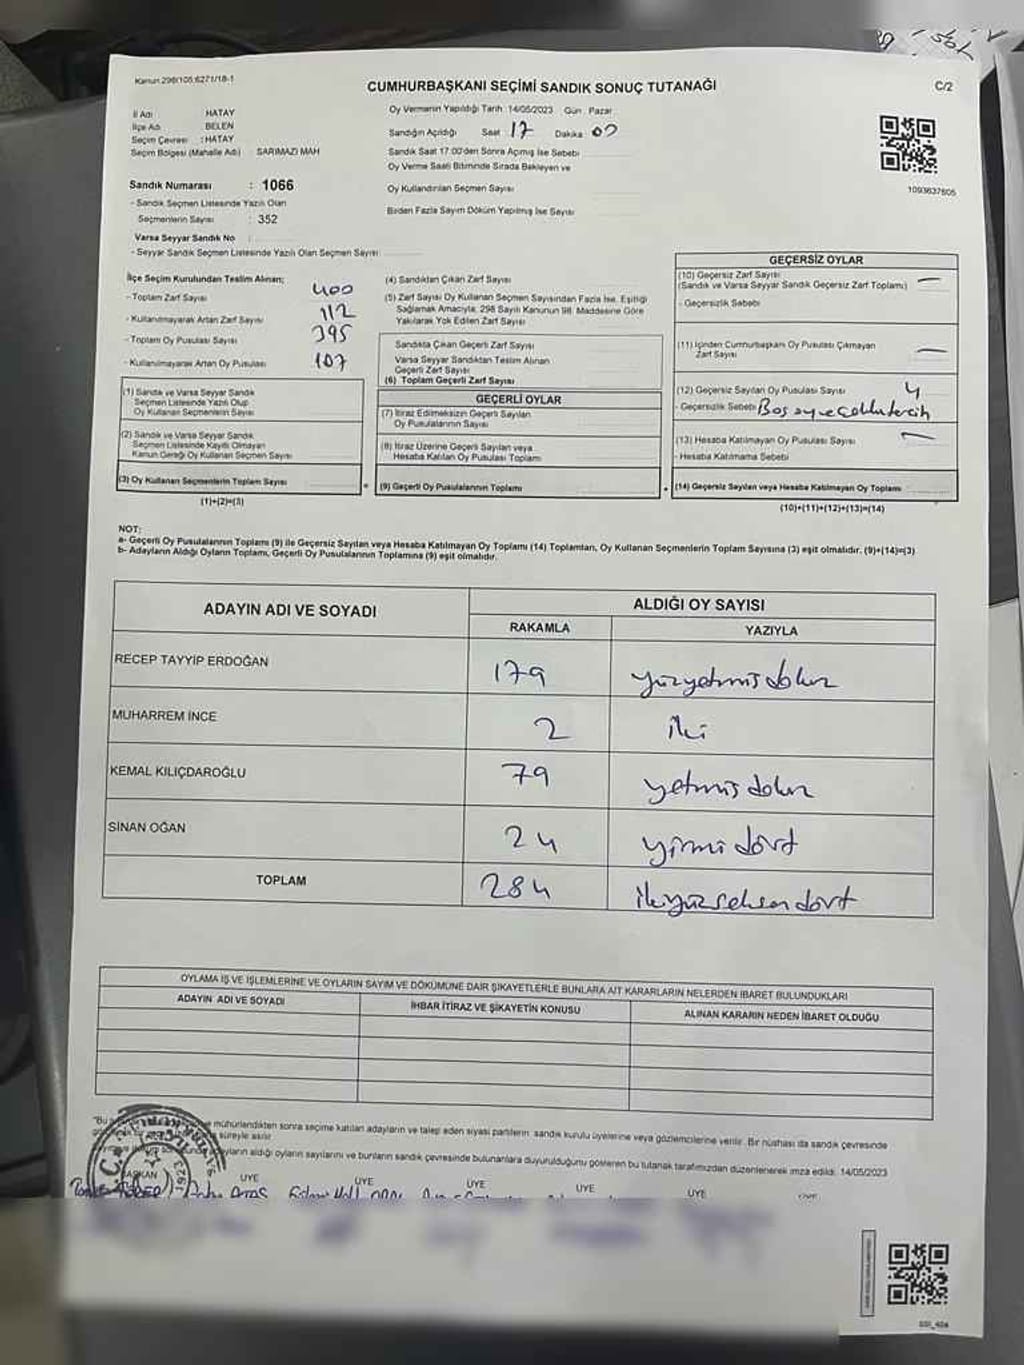 Kanun 298/105 6271/18-1
CUMHURBAŞKANI SEÇİMİ SANDIK SONUÇ TUTANAĞI
C/2
İl Adı HATAY
İlçe Adı BELEN
Seçim Çevresi : HATAY
Seçim Bölgesi (Mahalle Adı) SARIMAZI MAH
Oy Vermenin Yapıldığı Tarih 14/05/2023 Gün Pazar
Sandığın Açıldığı Saat 17 Dakika 00
Sandık Saat 17:00'den Sonra Açımış İse Sebebi
Oy Verme Saati Bitiminde Sırada Bekleyen ve
Oy Kullandırılan Seçmen Sayısı
Birden Fazla Sayım Döküm Yapılmış İse Sayısı
1093637605
Sandık Numarası : 1066
- Sandık Seçmen Listesinde Yazılı Olan
Seçmenlerin Sayısı : 352
Varsa Seyyar Sandık No :
- Seyyar Sandık Seçmen Listesinde Yazılı Olan Seçmen Sayısı
İlçe Seçim Kurulundan Teslim Alınan;
- Toplam Zarf Sayısı 400
- Kullanılmayarak Artan Zarf Sayısı 112
- Toplam Oy Pusulası Sayısı 395
- Kullanılmayarak Artan Oy Pusulası 107
(1) Sandık ve Varsa Seyyar Sandık
Seçmen Listesinde Yazılı Olup
Oy Kullanan Seçmenlerin Sayısı
(2) Sandık ve Varsa Seyyar Sandık
Seçmen Listesinde Kayıtlı Olmayan
Kanun Gereği Oy Kullanan Seçmen Sayısı
(3) Oy Kullanan Seçmenlerin Toplam Sayısı
(1)+(2)=(3)
(4) Sandıktan Çıkan Zarf Sayısı
(5) Zarf Sayısı Oy Kullanan Seçmen Sayısından Fazla İse, Eşitliği
Sağlamak Amacıyla, 298 Sayılı Kanunun 98. Maddesine Göre
Yakılarak Yok Edilen Zarf Sayısı
Sandıkta Çıkan Geçerli Zarf Sayısı
Varsa Seyyar Sandıktan Teslim Alınan
Geçerli Zarf Sayısı
(6) Toplam Geçerli Zarf Sayısı
GEÇERLİ OYLAR
(7) İtiraz Edilmeksizin Geçerli Sayılan
Oy Pusulalarının Sayısı
(8) İtiraz Üzerine Geçerli Sayılan veya
Hesaba Katılan Oy Pusulası Toplamı
= (9) Geçerli Oy Pusulalarının Toplamı
GEÇERSİZ OYLAR
(10) Geçersiz Zarf Sayısı
(Sandık ve Varsa Seyyar Sandık Geçersiz Zarf Toplamı) —
- Geçersizlik Sebebi
(11) İçinden Cumhurbaşkanı Oy Pusulası Çıkmayan
Zarf Sayısı —
(12) Geçersiz Sayılan Oy Pusulası Sayısı 4
- Geçersizlik Sebebi Boş oy ve çoklu tercih
(13) Hesaba Katılmayan Oy Pusulası Sayısı —
- Hesaba Katılmama Sebebi
+ (14) Geçersiz Sayılan veya Hesaba Katılmayan Oy Toplamı
(10)+(11)+(12)+(13)=(14)
NOT:
a- Geçerli Oy Pusulalarının Toplamı (9) ile Geçersiz Sayılan veya Hesaba Katılmayan Oy Toplamı (14) Toplamları, Oy Kullanan Seçmenlerin Toplam Sayısına (3) eşit olmalıdır. (9)+(14)=(3)
b- Adayların Aldığı Oyların Toplamı, Geçerli Oy Pusulalarının Toplamına (9) eşit olmalıdır.
ADAYIN ADI VE SOYADI
ALDIĞI OY SAYISI
RAKAMLA YAZIYLA
RECEP TAYYİP ERDOĞAN 179 yüzyetmişdokuz
MUHARREM İNCE 2 iki
KEMAL KILIÇDAROĞLU 79 yetmişdokuz
SİNAN OĞAN 24 yirmidört
TOPLAM 284 ikiyüzseksendört
OYLAMA İŞ VE İŞLEMLERİNE VE OYLARIN SAYIM VE DÖKÜMÜNE DAİR ŞİKAYETLERLE BUNLARA AİT KARARLARIN NELERDEN İBARET BULUNDUKLARI
ADAYIN ADI VE SOYADI İHBAR İTİRAZ VE ŞİKAYETİN KONUSU ALINAN KARARIN NEDEN İBARET OLDUĞU
"Bu mühürlendikten sonra seçime katılan adayların ve talep eden siyasi partilerin sandık kurulu üyelerine veya gözlemcilerine verilir. Bir nüshası da sandık çevresinde
süreyle asılır
adayların aldığı oyların sayılarını ve bunların sandık çevresinde bulunanlara duyurulduğunu gösteren bu tutanak tarafımızdan düzenlenerek imza edildi. 14/05/2023
BAŞKAN ÜYE ÜYE ÜYE ÜYE ÜYE ÜYE